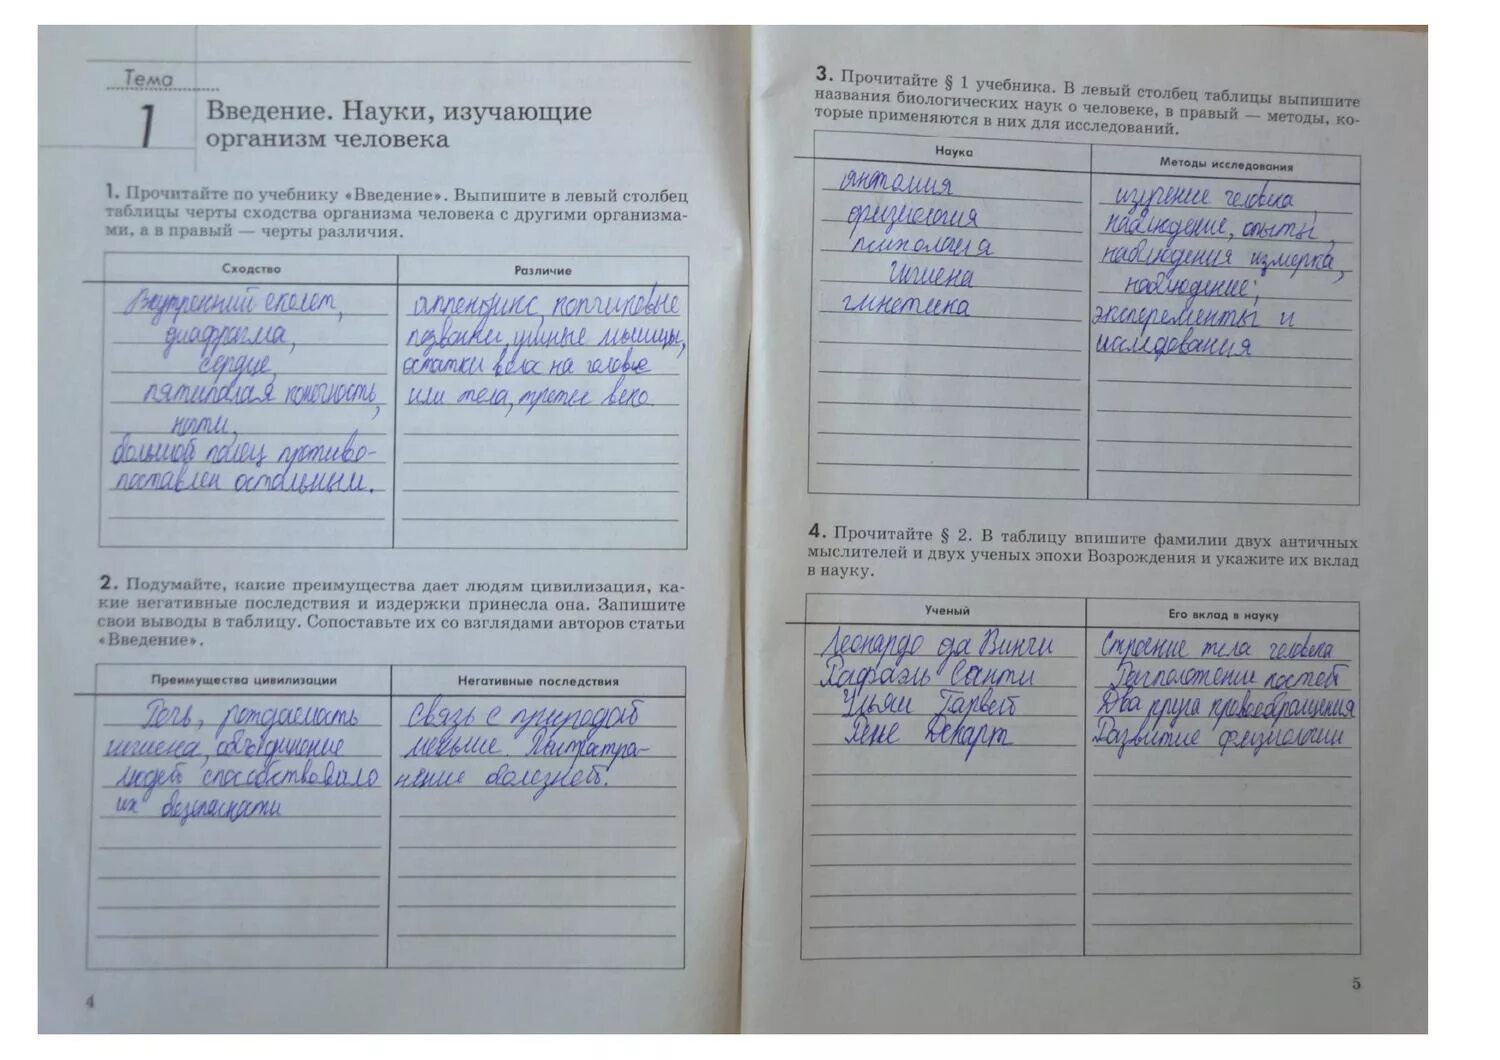 Тема
1
Введение. Науки, изучающие
организм человека
1. Прочитайте по учебнику «Введение». Выпишите в левый столбец
таблицы черты сходства организма человека с другими организма-
ми, а в правый — черты различия.
Сходство
Различие
Внутренний скелет,
диафрагма,
сердце,
пятипалая конечность,
ногти,
большой палец противо-
поставлен остальным.
аппендикс, копчиковые
позвонки, ушные мышцы,
остатки волос на голове
или тела, третее веко.
2. Подумайте, какие преимущества дает людям цивилизация, ка-
кие негативные последствия и издержки принесла она. Запишите
свои выводы в таблицу. Сопоставьте их со взглядами авторов статьи
«Введение».
Преимущества цивилизации
Негативные последствия
Речь, рождаемость
гигиена, объединение
людей способствовало
их безопасности
Связь с природой
меньше.
болезней.
4
3. Прочитайте § 1 учебника. В левый столбец таблицы выпишите
названия биологических наук о человеке, в правый — методы, ко-
торые применяются в них для исследований.
Наука
Методы исследования
анатомия
физиология
психология
гигиена
генетика
изучение человека,
наблюдение, опыты,
наблюдения измерка,
наблюдение;
эксперементы и
исследования
4. Прочитайте § 2. В таблицу впишите фамилии двух античных
мыслителей и двух ученых эпохи Возрождения и укажите их вклад
в науку.
Ученый
Его вклад в науку
Леонардо да Винчи
Рафаэль Санти
Уильям Гарвей
Рене Декарт
Строение тела человека
Расположение костей
Два круга кровообращения
Развитие физиологии
5